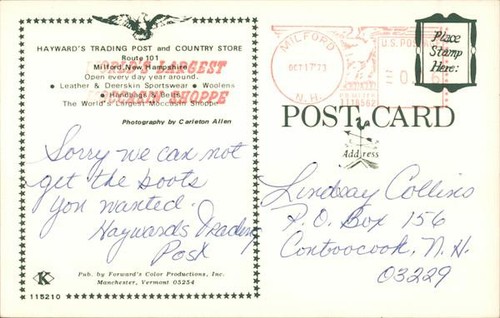 HAYWARD'S TRADING POST and COUNTRY STORE
Route 101
Milford, New Hampshire
WORLD'S LARGEST
Open every day year around.
• Leather & Deerskin Sportswear • Woolens
• Handbags & Belts
The World's Largest Moccasin Shoppe
SHOPPE
Photography by Carleton Allen
Sorry we can not
get the boots
you wanted.
Haywards Trading
Post
K
Pub. by Forward's Color Productions, Inc.
Manchester, Vermont 05254
115210
MILFORD
OCT 17 '73
N.H.
U.S. POS
Place
Stamp
Here:
POST CARD
Address
Lindsay Collins
P.O. Box 156
Contoocook, N.H.
03229